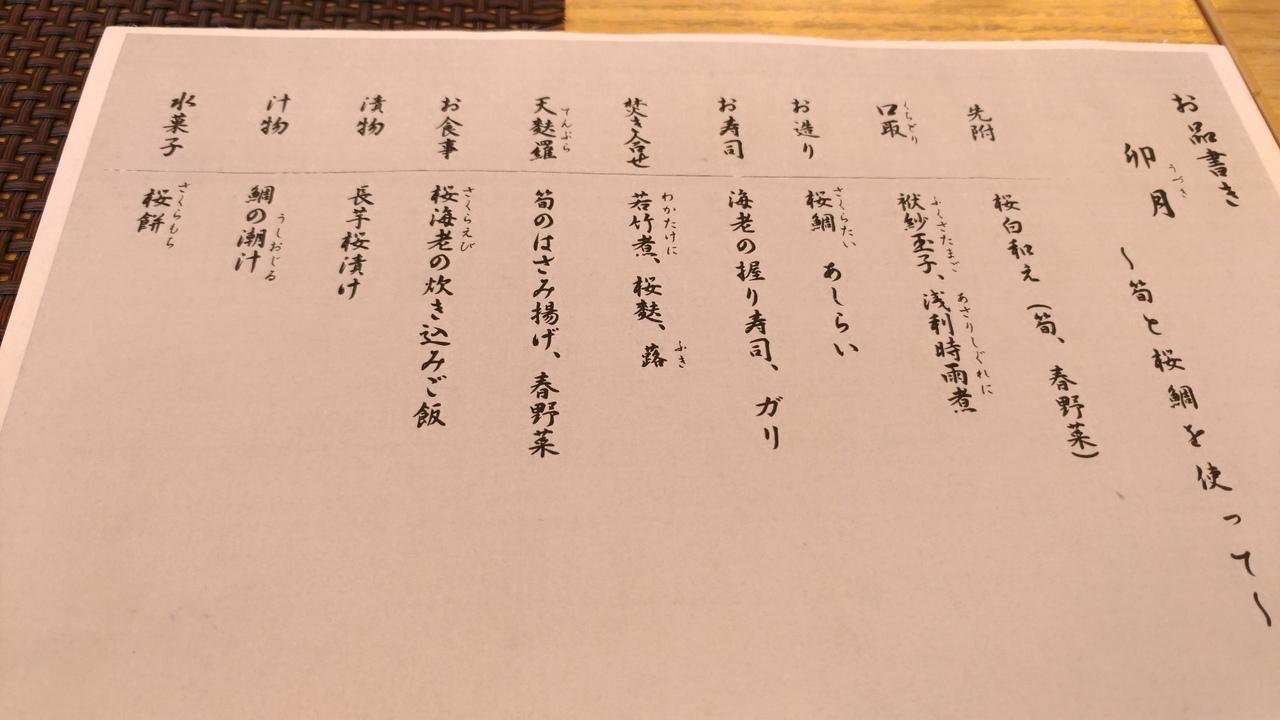 お品書き
卯月 〜筍と桜鯛を使って〜
うづき
先附 桜白和え(筍、春野菜)
口取 袱紗玉子、浅利時雨煮
くちどり ふくさたまご あさりしぐれに
お造り 桜鯛 あしらい
さくらたい
お寿司 海老の握り寿司、ガリ
焚き合せ 若竹煮、桜麩、蕗
わかたけに ふき
天麩羅 筍のはさみ揚げ、春野菜
てんぷら
お食事 桜海老の炊き込みご飯
さくらえび
漬物 長芋桜漬け
汁物 鯛の潮汁
うしおじる
水菓子 桜餅
さくらもち